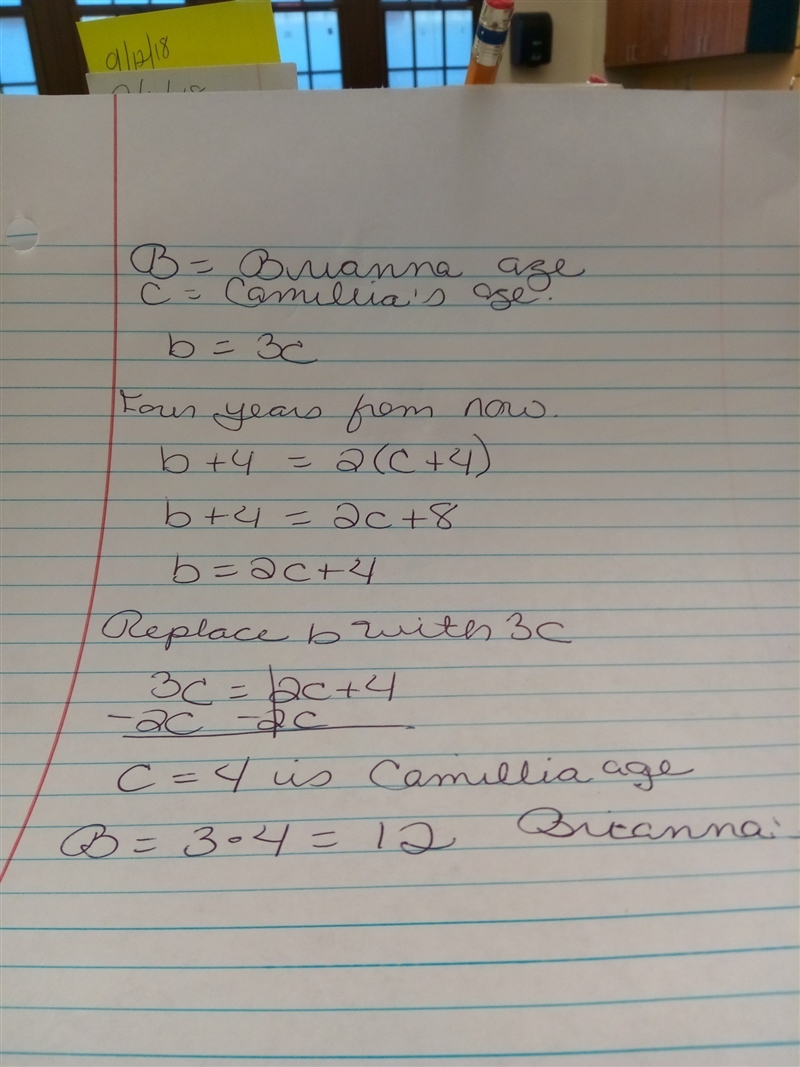 9/12/18
B = Brianna age
C = Camillia's age.
b = 3c
Four years from now.
b + 4 = 2(c + 4)
b + 4 = 2c + 8
b = 2c + 4
Replace b with 3c
3c = 2c + 4
-2c -2c
C = 4 is Camillia age
B = 3 • 4 = 12 Brianna